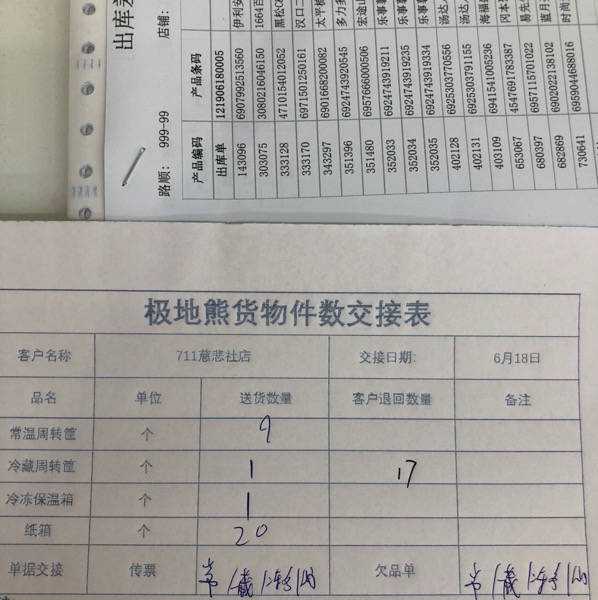 出库
店铺:
路顺: 999-99
产品编码 产品条码
出库单 121906180005
143096 6907992513560 伊利安
303075 3080216046150 1664百
333128 4710154012052 黑松C
333170 6971501250161 汉口二
343297 6901668200082 太平梳
351396 6924743920545 多力多
351480 6957666000506 宏途山
352033 6924743919211 乐事
352034 6924743919235 乐事
352035 6924743919334 乐事
402128 6925303770556 汤达
402131 6925303791155 汤达
403109 6941541005236 海福
653067 4547691783387 冈本
680397 6957115701022 易先
682869 6902022138102 蓝月
730641 6959044688016 时尚
极地熊货物件数交接表
客户名称 711慈悲社店 交接日期: 6月18日
品名 单位 送货数量 客户退回数量 备注
常温周转筐 个 9
冷藏周转筐 个 1 17
冷冻保温箱 个 1
纸箱 个 20
单据交接 传票 欠品单